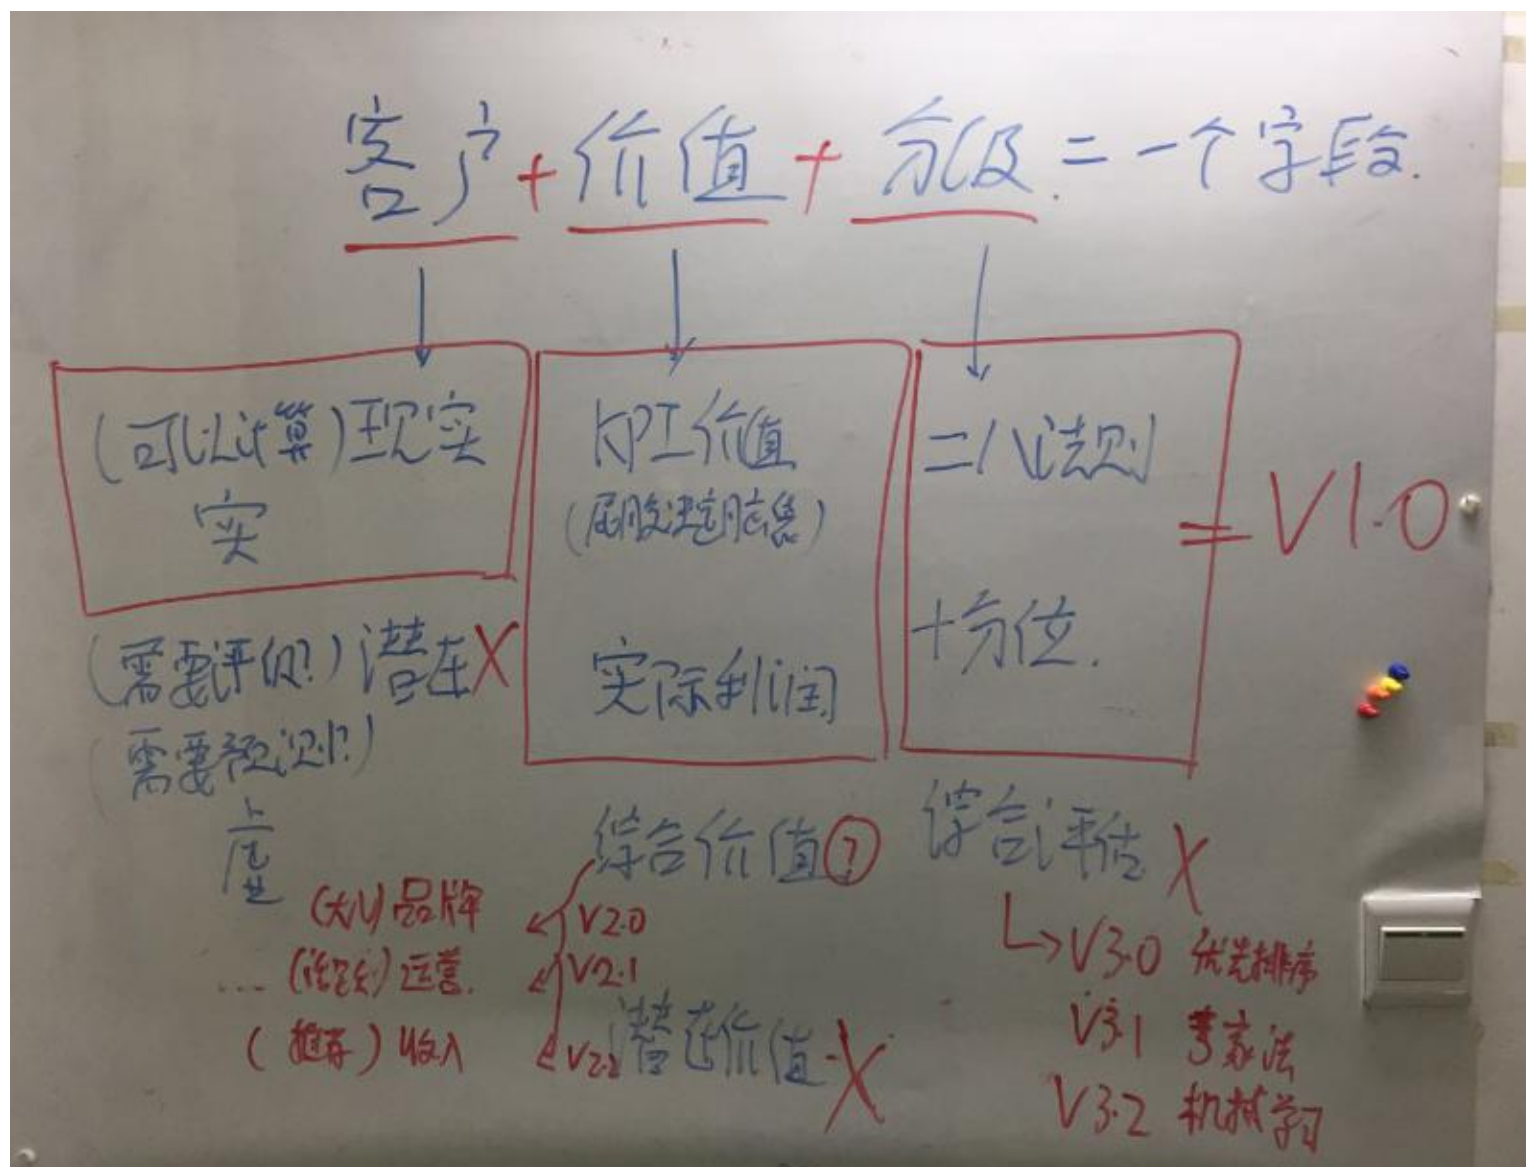 客户+价值+分级.=一个字段.
(可以计算)现实
实
KPI价值
(屁股决定脑袋)
实际利润
二八法则
十分位.
=V1.0
(需要评估?)潜在X
(需要预测?)
虚
综合价值?
综合评估X
(大V)品牌
V2.0
... (活跃)运营.
V2.1
(推荐)收入
V2.2
潜在价值X
V3.0 优先排序
V3.1 专家法
V3.2 机械学习